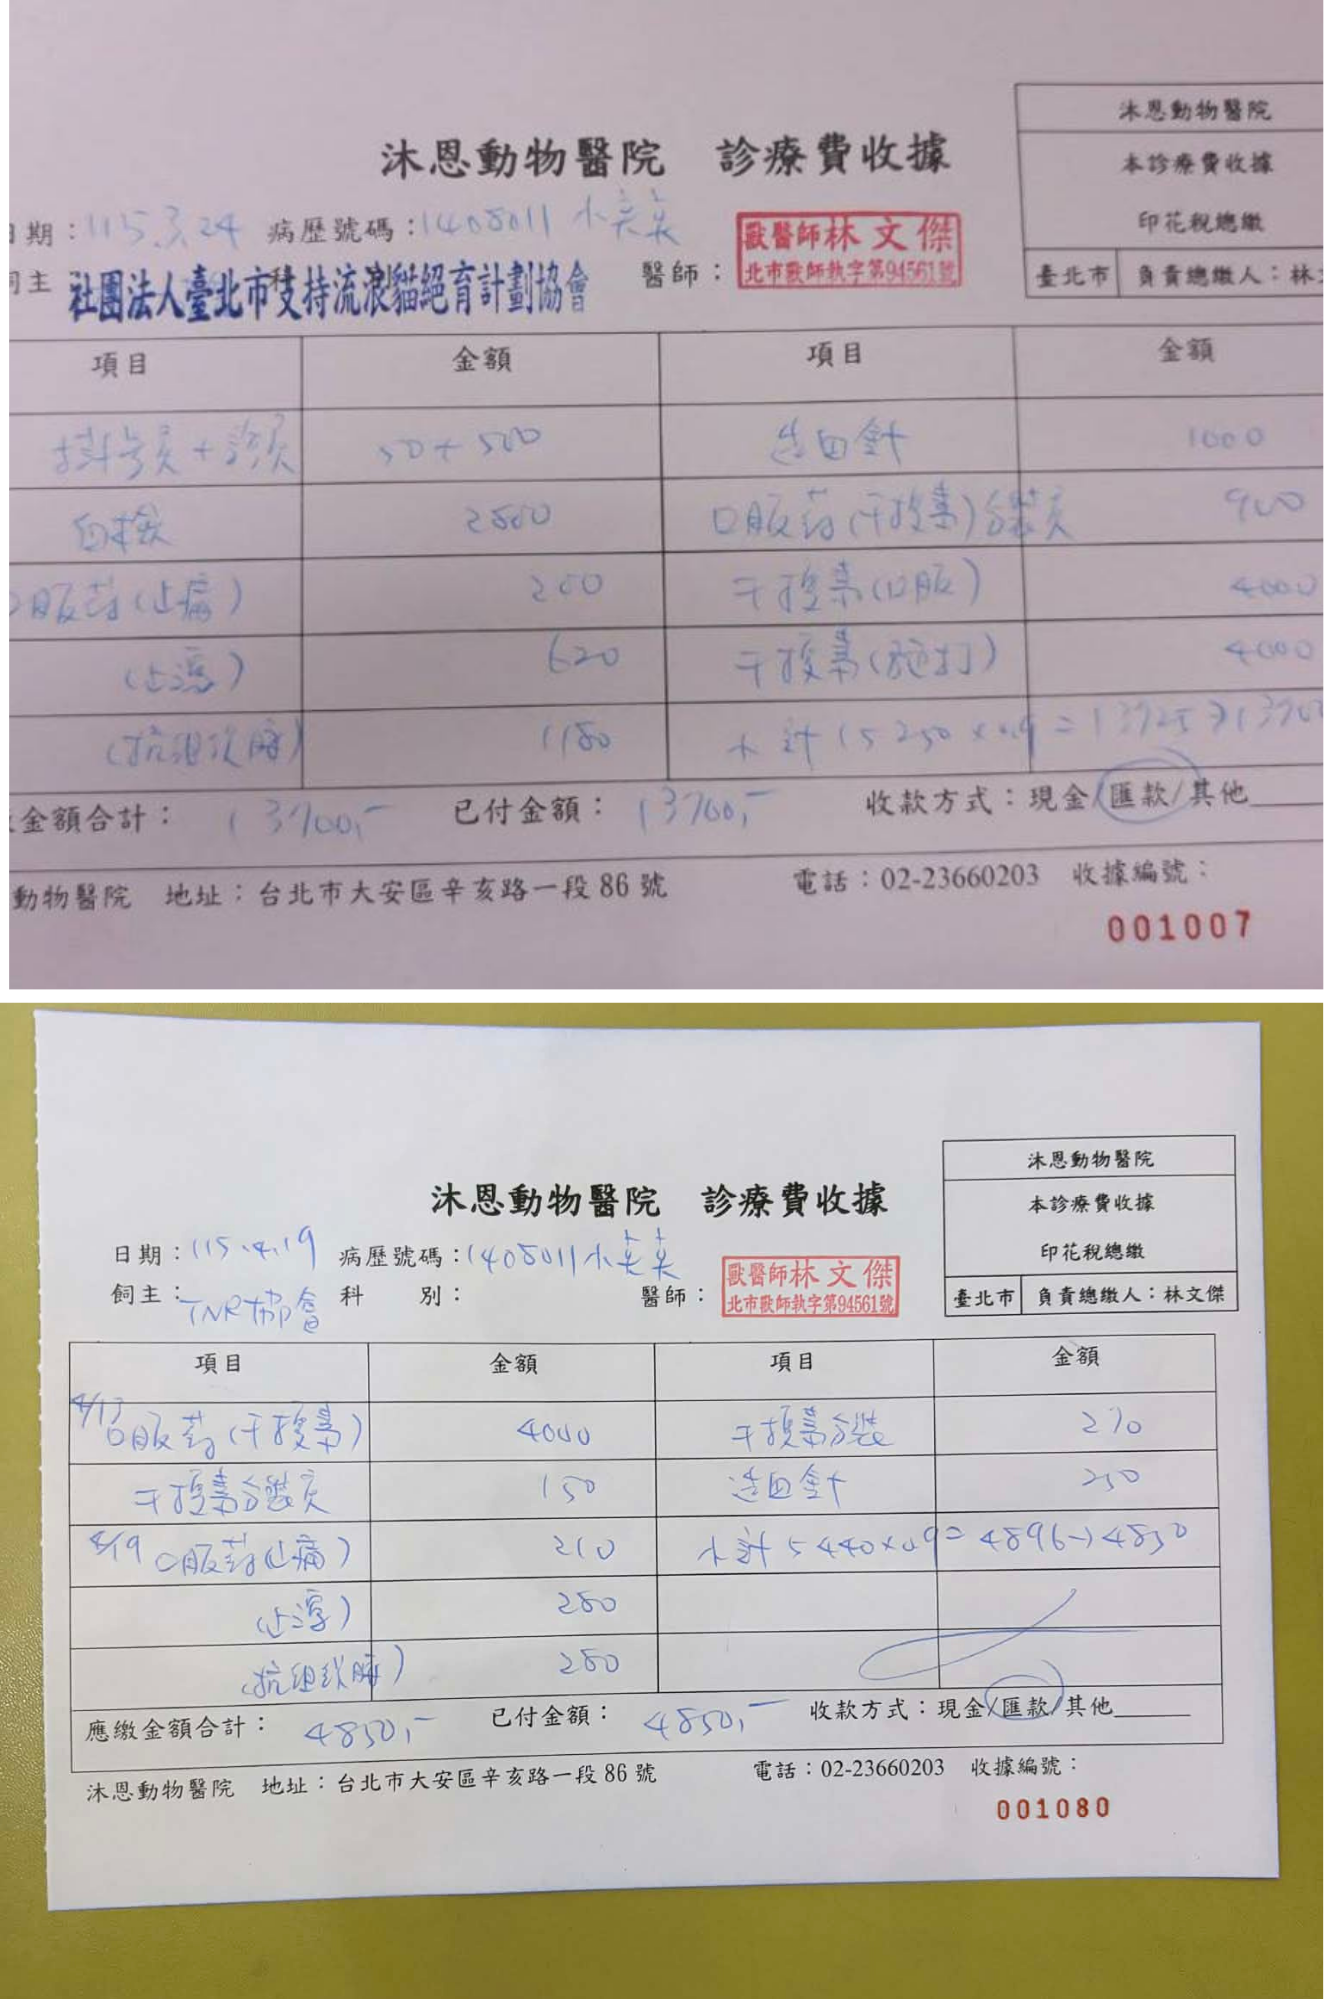 沐恩動物醫院 診療費收據
沐恩動物醫院
本診療費收據
印花稅總繳
臺北市 負責總繳人：林
日期：115.3.24 病歷號碼：1408011 小芙芙
飼主 社團法人臺北市支持流浪貓絕育計劃協會 醫師：
獸醫師林文傑
北市獸師執字第94561號
項目 金額 項目 金額
掛号費+診費 50+500 造血針 1000
血檢 口服葯(干擾素)分裝費 900
口服葯(止痛) 干擾素(口服) 4000
(止瀉) 620 干擾素(施打) 4000
(抗組織胺) 1180 小計 15250×0.9=13725→
金額合計： 13700,- 已付金額： 13700,- 收款方式：現金/匯款/其他
動物醫院 地址：台北市大安區辛亥路一段86號 電話：02-23660203 收據編號：
001007
沐恩動物醫院 診療費收據
沐恩動物醫院
本診療費收據
印花稅總繳
臺北市 負責總繳人：林文傑
日期：115.4.19 病歷號碼：1408011 小芙芙
飼主：TNR協會 科 別： 醫師：
獸醫師林文傑
北市獸師執字第94561號
項目 金額 項目 金額
4/13 口服葯(干擾素) 4000 干擾素分裝 270
干擾素分裝費 150 造血針 250
4/19 口服葯(止痛) 210 小計 5440×0.9=4896→4850
(止瀉) 280
(抗組織胺) 280
應繳金額合計： 4850,- 已付金額： 4850,- 收款方式：現金/匯款/其他
沐恩動物醫院 地址：台北市大安區辛亥路一段86號 電話：02-23660203 收據編號：
001080